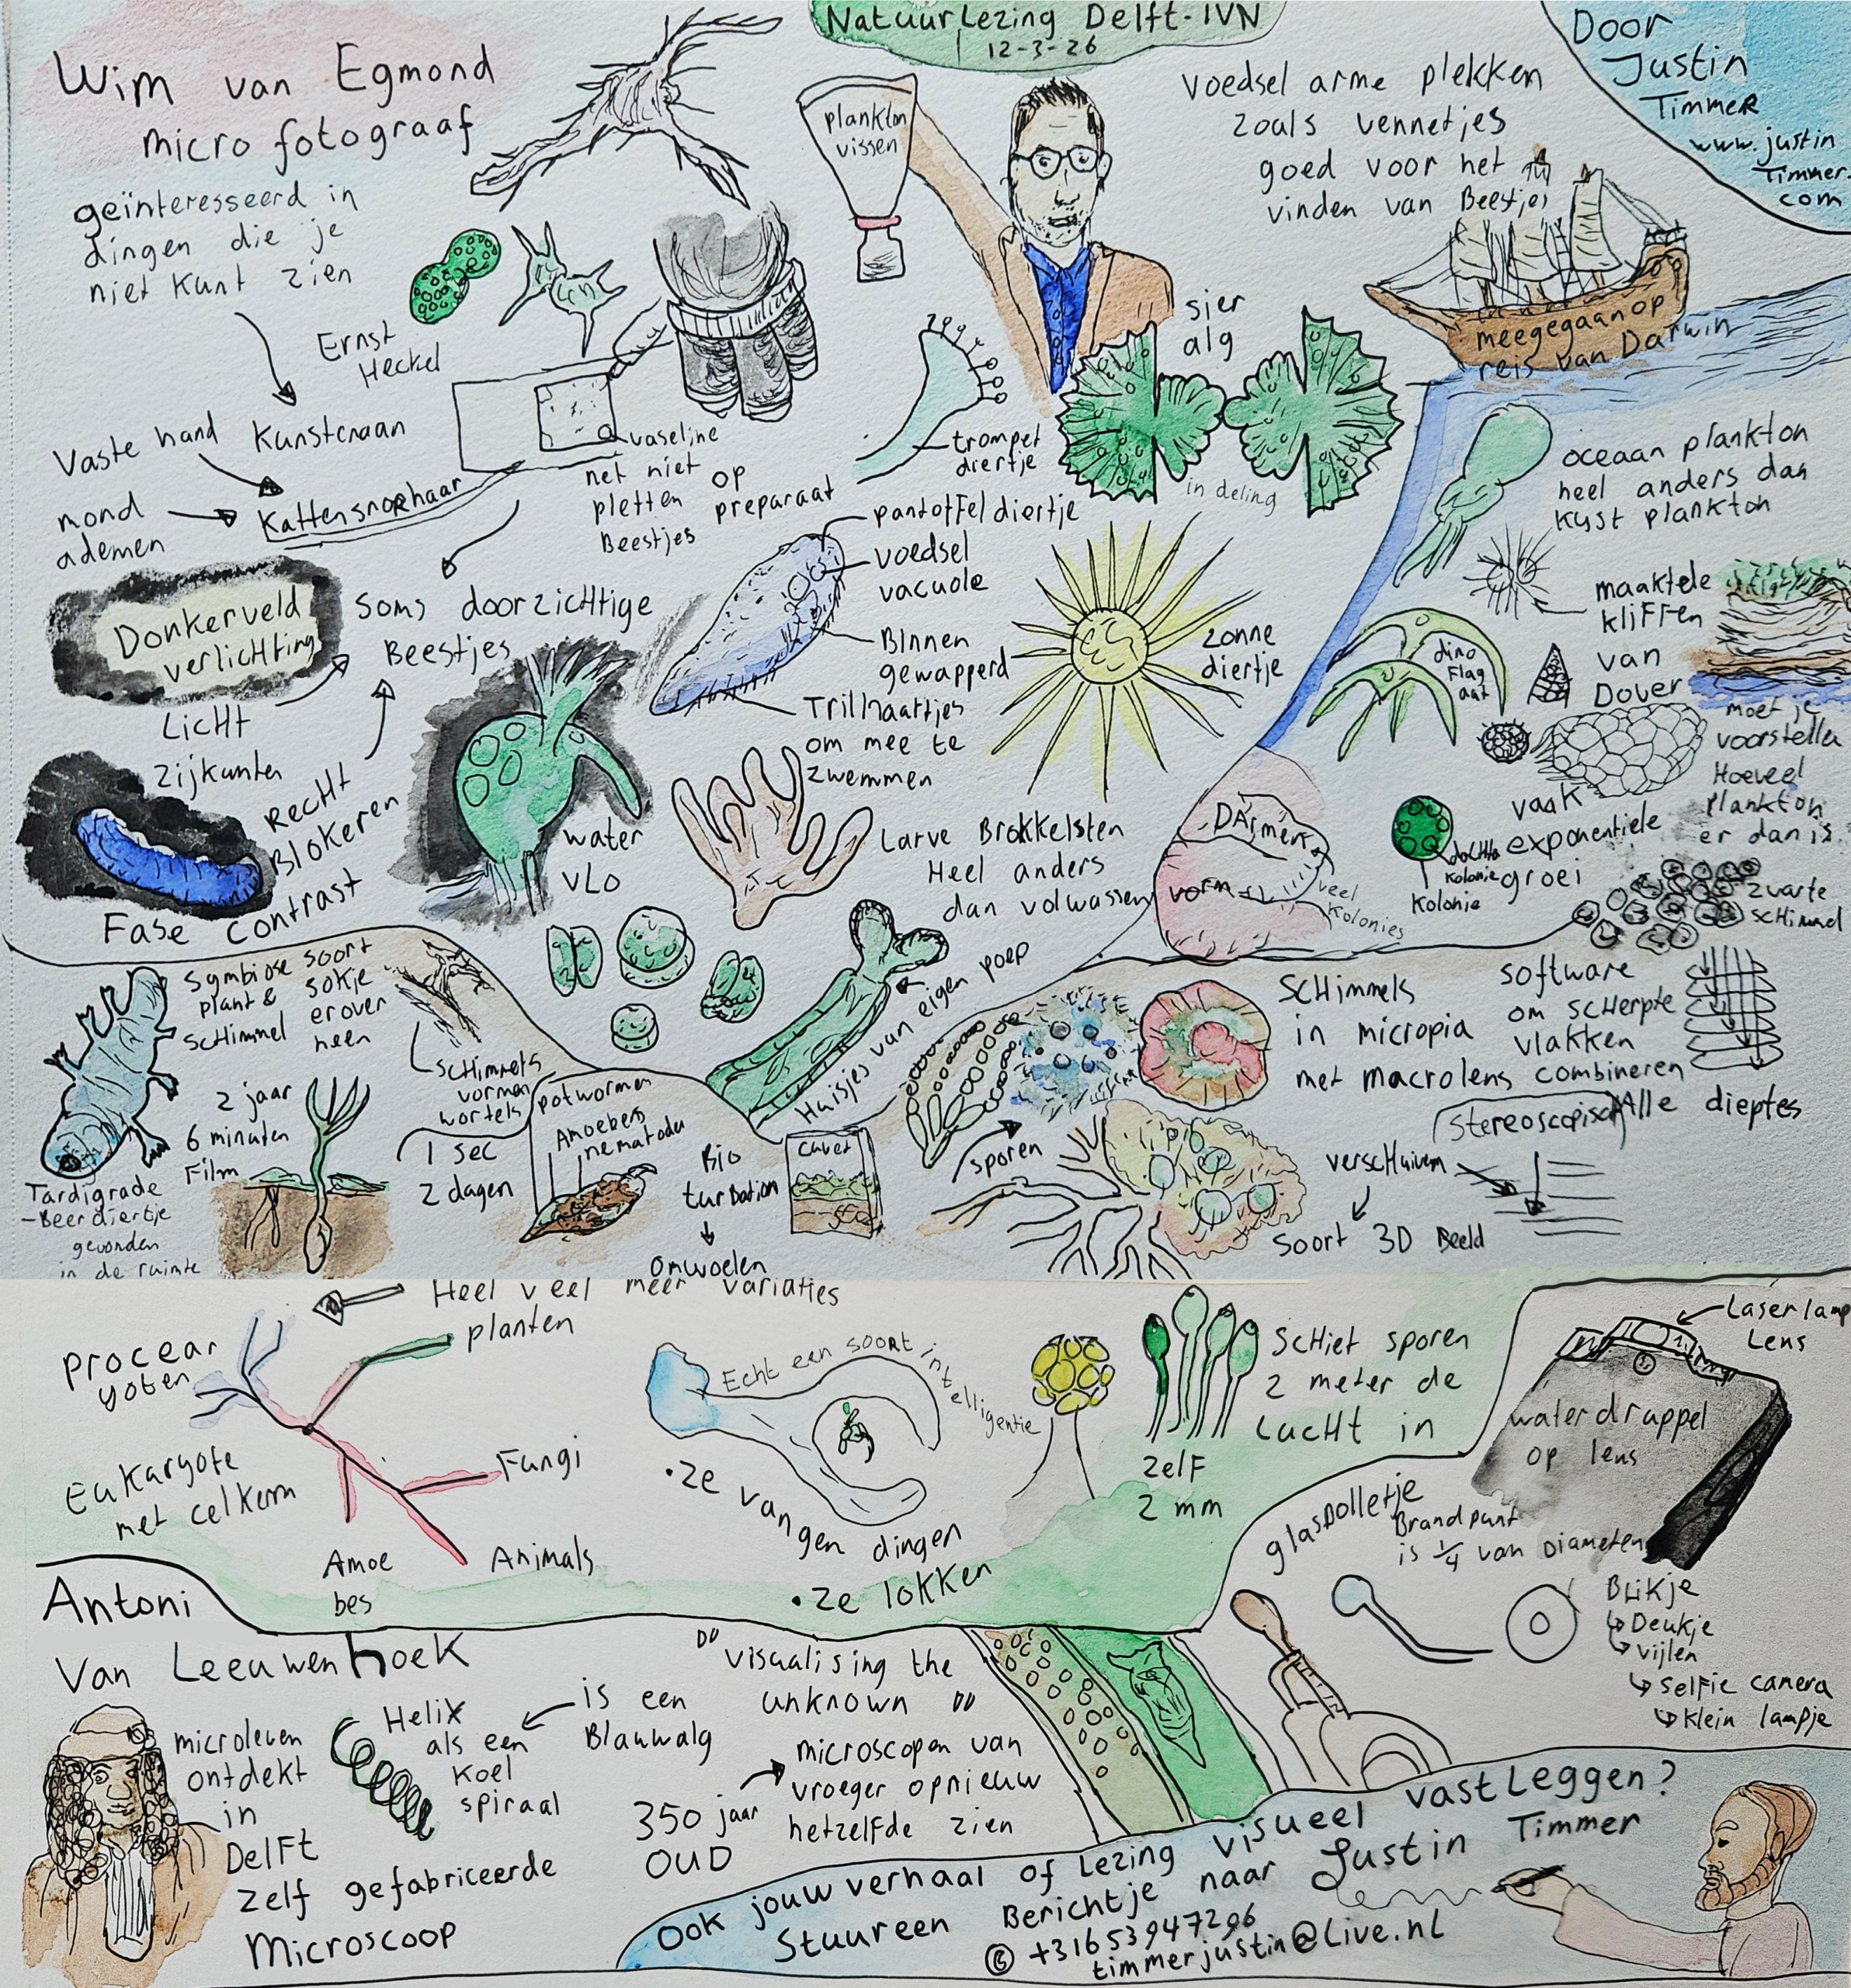 Natuurlezing Delft-IVN
12-3-26
Wim van Egmond
micro fotograaf
geïnteresseerd in
dingen die je
niet kunt zien
Ernst
Heckel
Vaste hand
Kunstcnaan
mond
ademen
Kattensnorhaar
vaseline
net niet
pletten op
Beestjes preparaat
plankton
vissen
Voedsel arme plekken
zoals vennetjes
goed voor het
vinden van Beestjes
Door
Justin
Timmer
www.justin
Timmer.
com
meegegaan op
reis van Darwin
sier
alg
in deling
trompet
diertje
pantoffeldiertje
voedsel
vacuole
Binnen
gewapperd
Trilhaartjes
om mee te
zwemmen
zonne
diertje
oceaan plankton
heel anders dan
kust plankton
maaktele
kliffen
van
Dover
moet je
voorstellen
Hoeveel
plankton
er dan is
dino
Flag
aat
Donkerveld
verlichting
soms doorzichtige
Beestjes
Licht
zijkanten
Recht
Blokeren
Fase contrast
water
vlo
Larve Brokkelsten
Heel anders
dan volwassen
Darmen
vorm
veel
kolonies
vaak
exponentiele
groei
dochter
kolonie
kolonie
zwarte
schimmel
symbiose soort
plant & sokje
schimmel erover
heen
schimmels
vormen
wortels
2 jaar
6 minuten
Film
1 sec
2 dagen
Tardigrade
-Beerdiertje
gevonden
in de ruimte
potwormen
Amoebes
nematode
Bio
turbation
omwoelen
cuvet
Huisjes van eigen poep
sporen
Schimmels
in micropia
met macrolens
software
om scherpte
vlakken
combineren
Alle dieptes
stereoscopisch
verschuiven
soort 3D Beeld
Heel veel meer variaties
planten
procear
yoten
Eukaryote
met celkern
Fungi
Amoe
bes
Animals
Echt een soort intelligentie
• ze vangen dingen
• ze lokken
schiet sporen
2 meter de
lucht in
zelf
2 mm
Laserlamp
Lens
waterdruppel
op lens
glasbolletje
Brandpunt
is 1/4 van Diameter
Blikje
↳ Deukje
↳ vijlen
↳ selfie camera
↳ klein lampje
Antoni
van Leeuwenhoek
microleven
ontdekt
in
Delft
zelf gefabriceerde
Microscoop
Helix
als een
koel
spiraal
is een
Blauwalg
"visualising the
unknown"
350 jaar
OUD
microscopen van
vroeger opnieuw
hetzelfde zien
Ook jouw verhaal of Lezing visueel vastleggen?
Stuur een Berichtje naar Justin Timmer
+31653947296
timmerjustin@live.nl